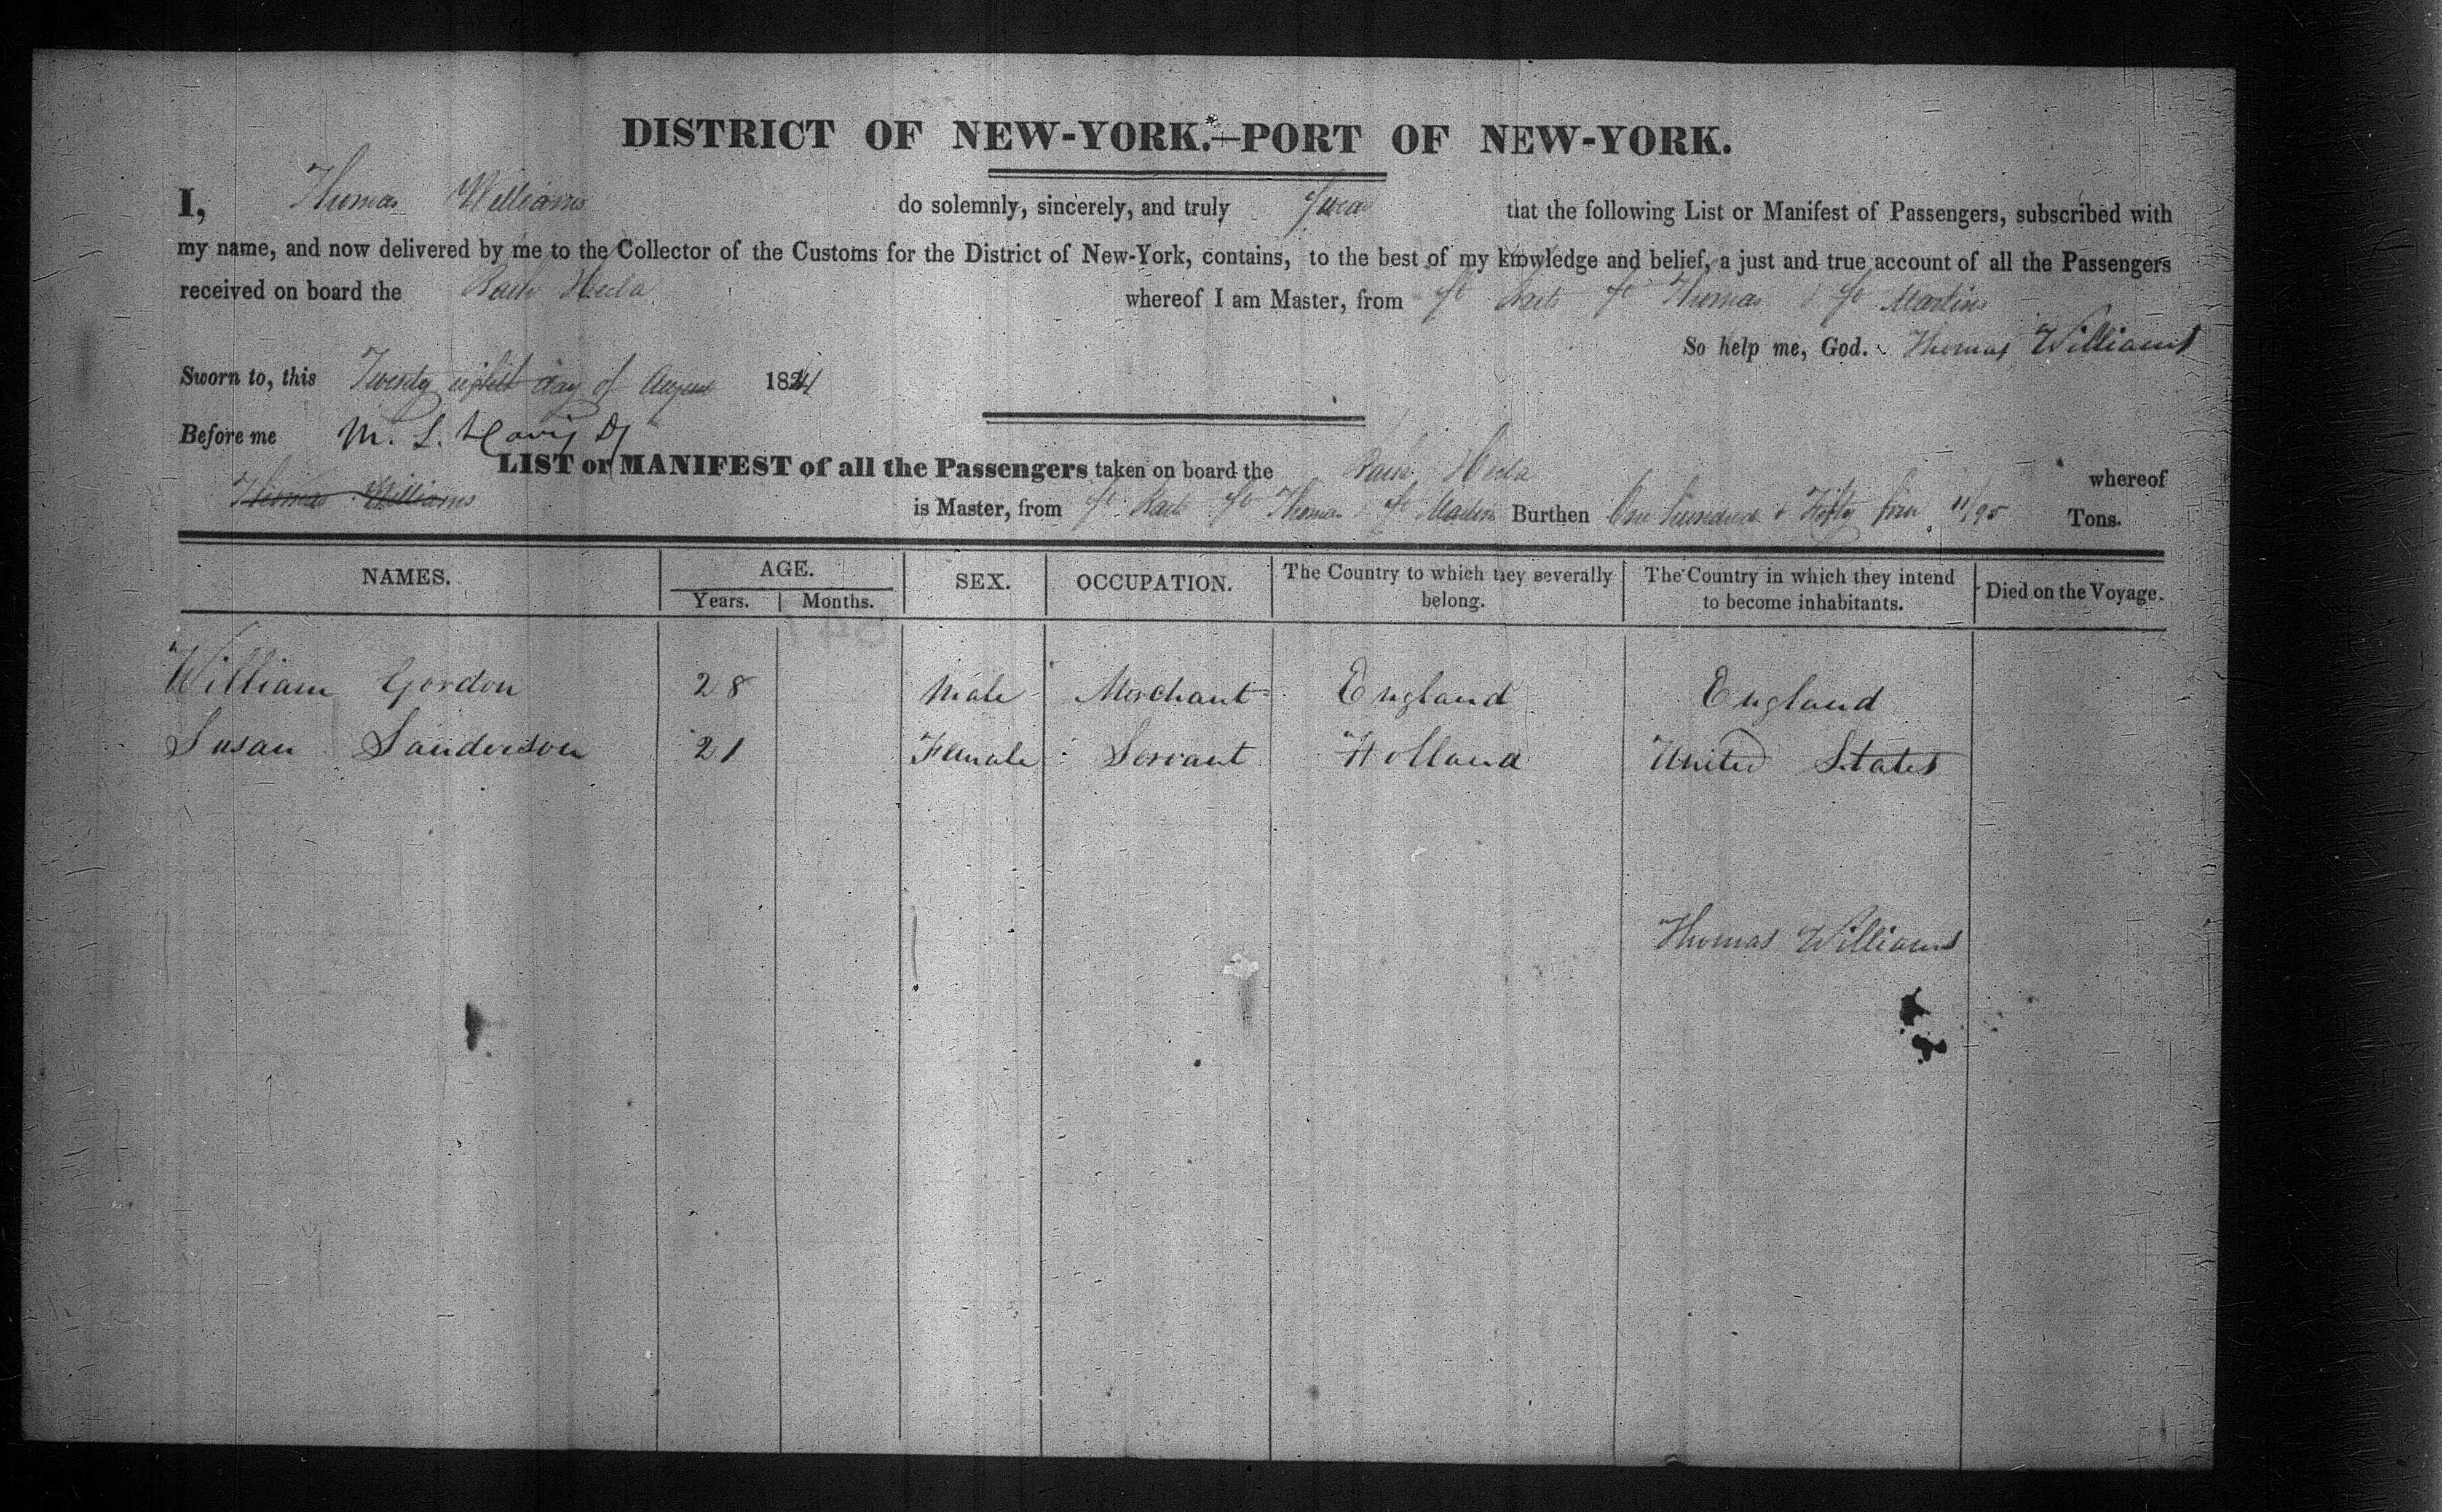 DISTRICT OF NEW-YORK.—PORT OF NEW-YORK.
I, Thomas Williams do solemnly, sincerely, and truly Swear that the following List or Manifest of Passengers, subscribed with
my name, and now delivered by me to the Collector of the Customs for the District of New-York, contains, to the best of my knowledge and belief, a just and true account of all the Passengers
received on board the Hecla whereof I am Master, from St Barts St Thomas & St Martins
So help me, God. Thomas Williams
Sworn to, this Twenty eighth day of August 182
Before me M. L. Davis
LIST or MANIFEST of all the Passengers taken on board the Hecla whereof
Thomas Williams is Master, from St Barts St Thomas & St Martins Burthen One hundred & Fifty 11/95 Tons.
NAMES. AGE. SEX. OCCUPATION. The Country to which they severally belong. The Country in which they intend to become inhabitants. Died on the Voyage.
Years. Months.
William Gordon 28 Male Merchant England England
Susan Sanderson 21 Female Servant Holland United States
Thomas Williams